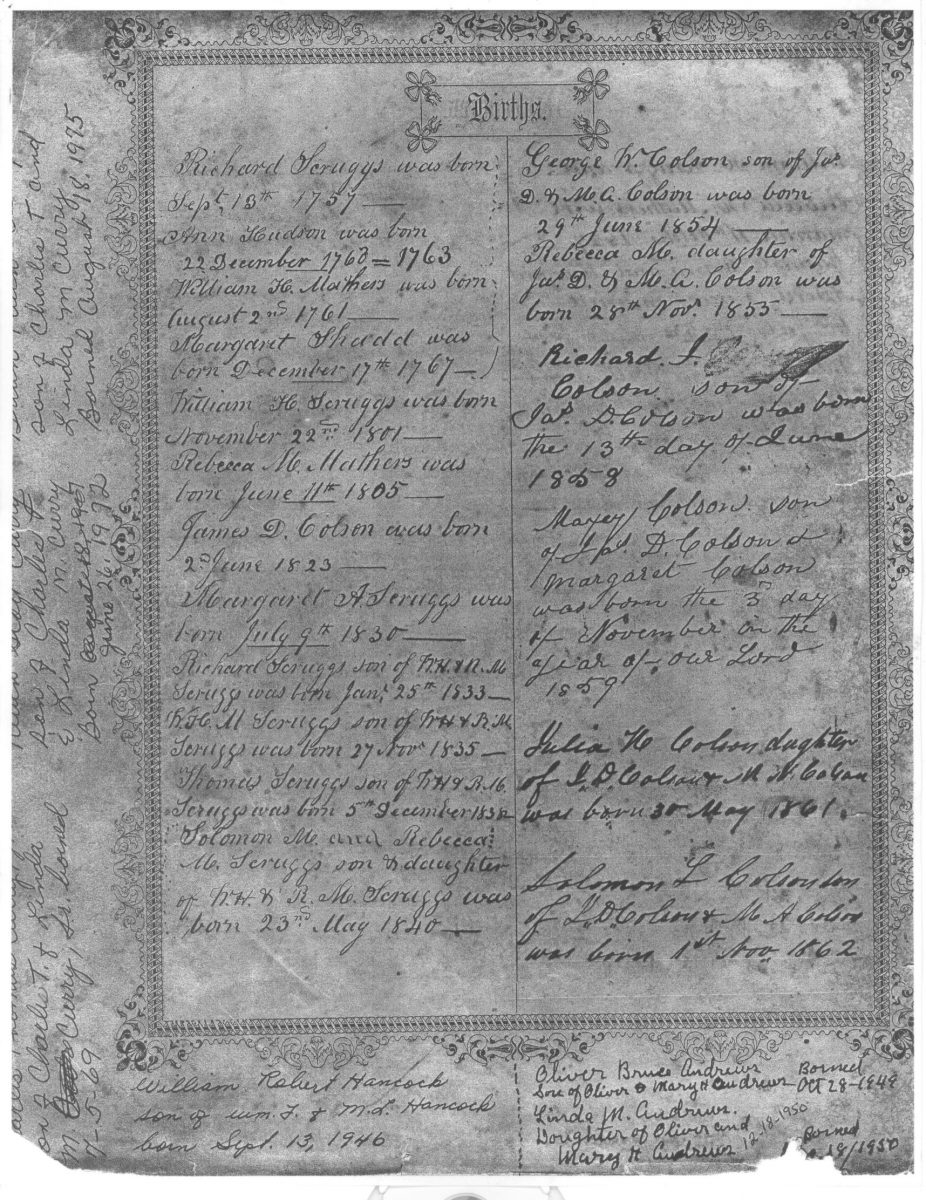 Births.
Richard Scruggs was born
Sept. 13th 1757
Ann Hudson was born
22 December 1760 = 1763
William H. Mathers was born
August 2nd 1761
Margaret Shedd was
born December 17th 1767
William H. Scruggs was born
November 22nd 1801
Rebecca M. Mathers was
born June 11th 1805
James D. Colson was born
2d June 1823
Margaret A Scruggs was
born July 9th 1830
Richard Scruggs son of WH & R. M
Scruggs was born Jany 25th 1833
W. H. M Scruggs son of WH & R. M
Scruggs was born 27 Novr 1835
Thomas Scruggs son of WH & R. M.
Scruggs was born 5th December 1838
Solomon M. and Rebecca
M. Scruggs son & daughter
of WH. & R. M. Scruggs was
born 23rd May 1840
George W. Colson son of Jas
D. & M. A. Colson was born
29th June 1854
Rebecca M. daughter of
Jas D. & M. A. Colson was
born 28th Novr 1855
Richard. J.
Colson son of
Jas. D. Colson was born
the 13th day of June
1858
Maxey Colson son
of Jas. D. Colson &
Margaret Colson
was born the 3rd day
of November in the
year of our Lord
1859
Julia H Colson daughter
of J. D. Colson & M Colson
was born 30 May 1861.
Solomon L Colson son
of J. D. Colson & M A Colson
was born 1st Nov. 1862
William Robert Hancock
son of Wm. F. & M. L. Hancock
born Sept. 13, 1946
Oliver Bruce Andrews Borned
Son of Oliver & Mary H Andrews Oct 28-1949
Linda M. Andrews.
Doughter of Oliver and
Mary H Andrews 12-18-1950 Borned
18/1950
son of Charles T. & Linda
M. Curry, Jr. borned
-5-69
son of Charles T
& Linda M. Curry
Born
June 26, 1972
son of Charles T and
Linda M Curry
Borned August 18, 1975